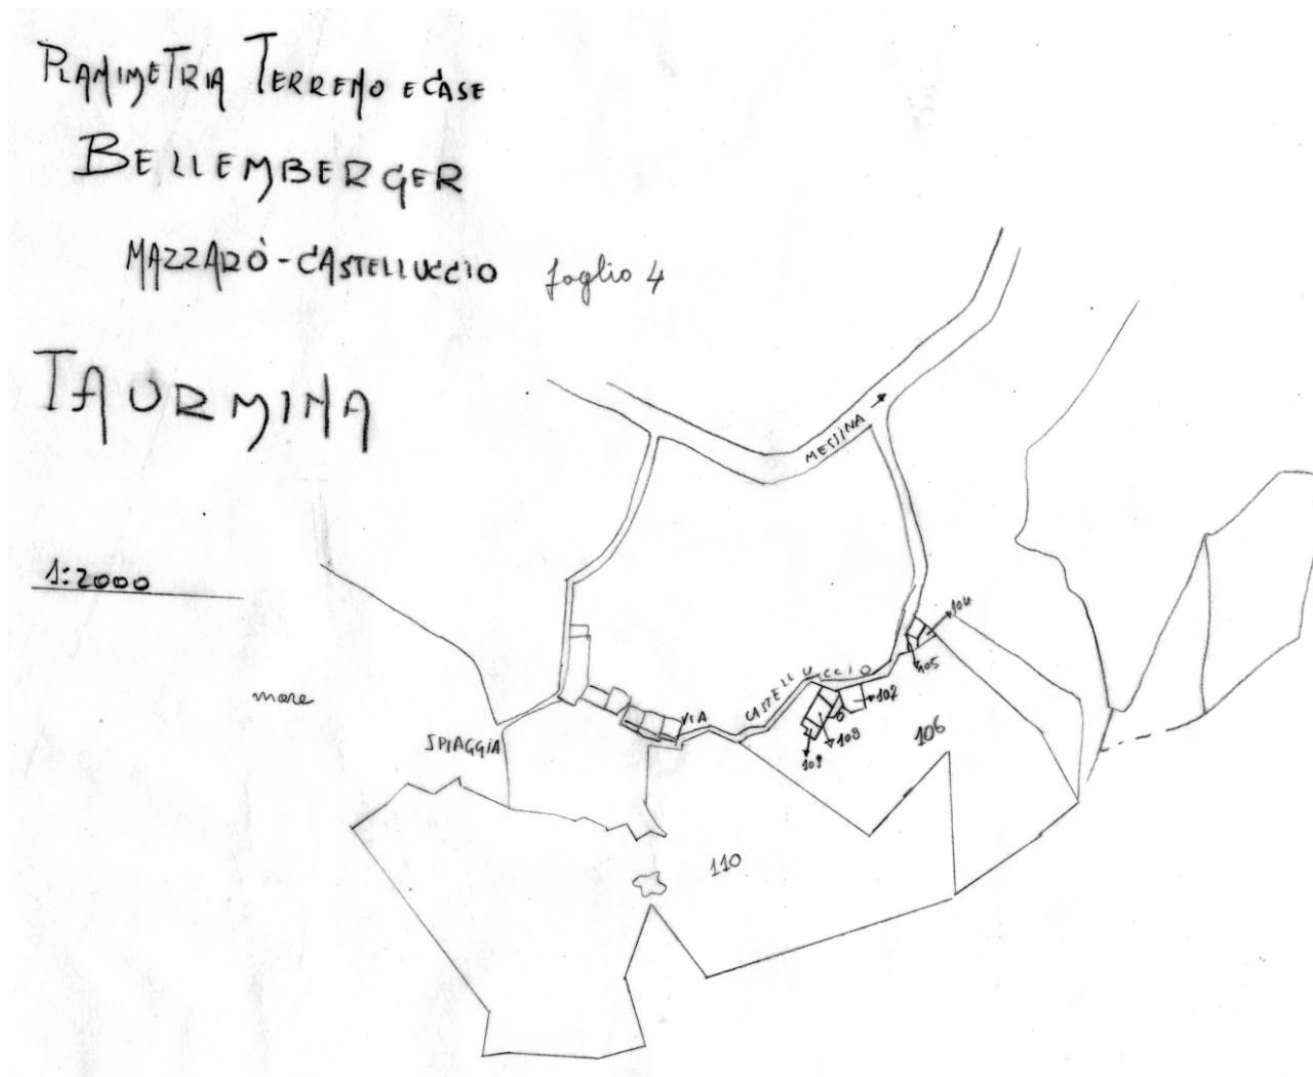 PLANIMETRIA TERRENO E CASE
BELLEMBERGER
MAZZARÒ-CASTELLUCCIO foglio 4
TAURMINA
1:2000
MESSINA
mare
SPIAGGIA
VIA CASTELLUCCIO
104
105
107
108
109
106
110